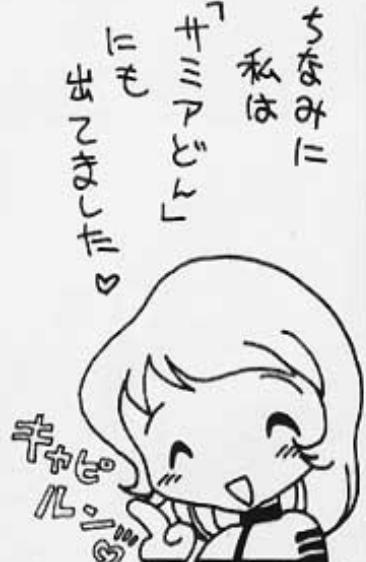 ちなみに
私は
「サミアどん」
にも
出てました♡
キャピ
ルン♡